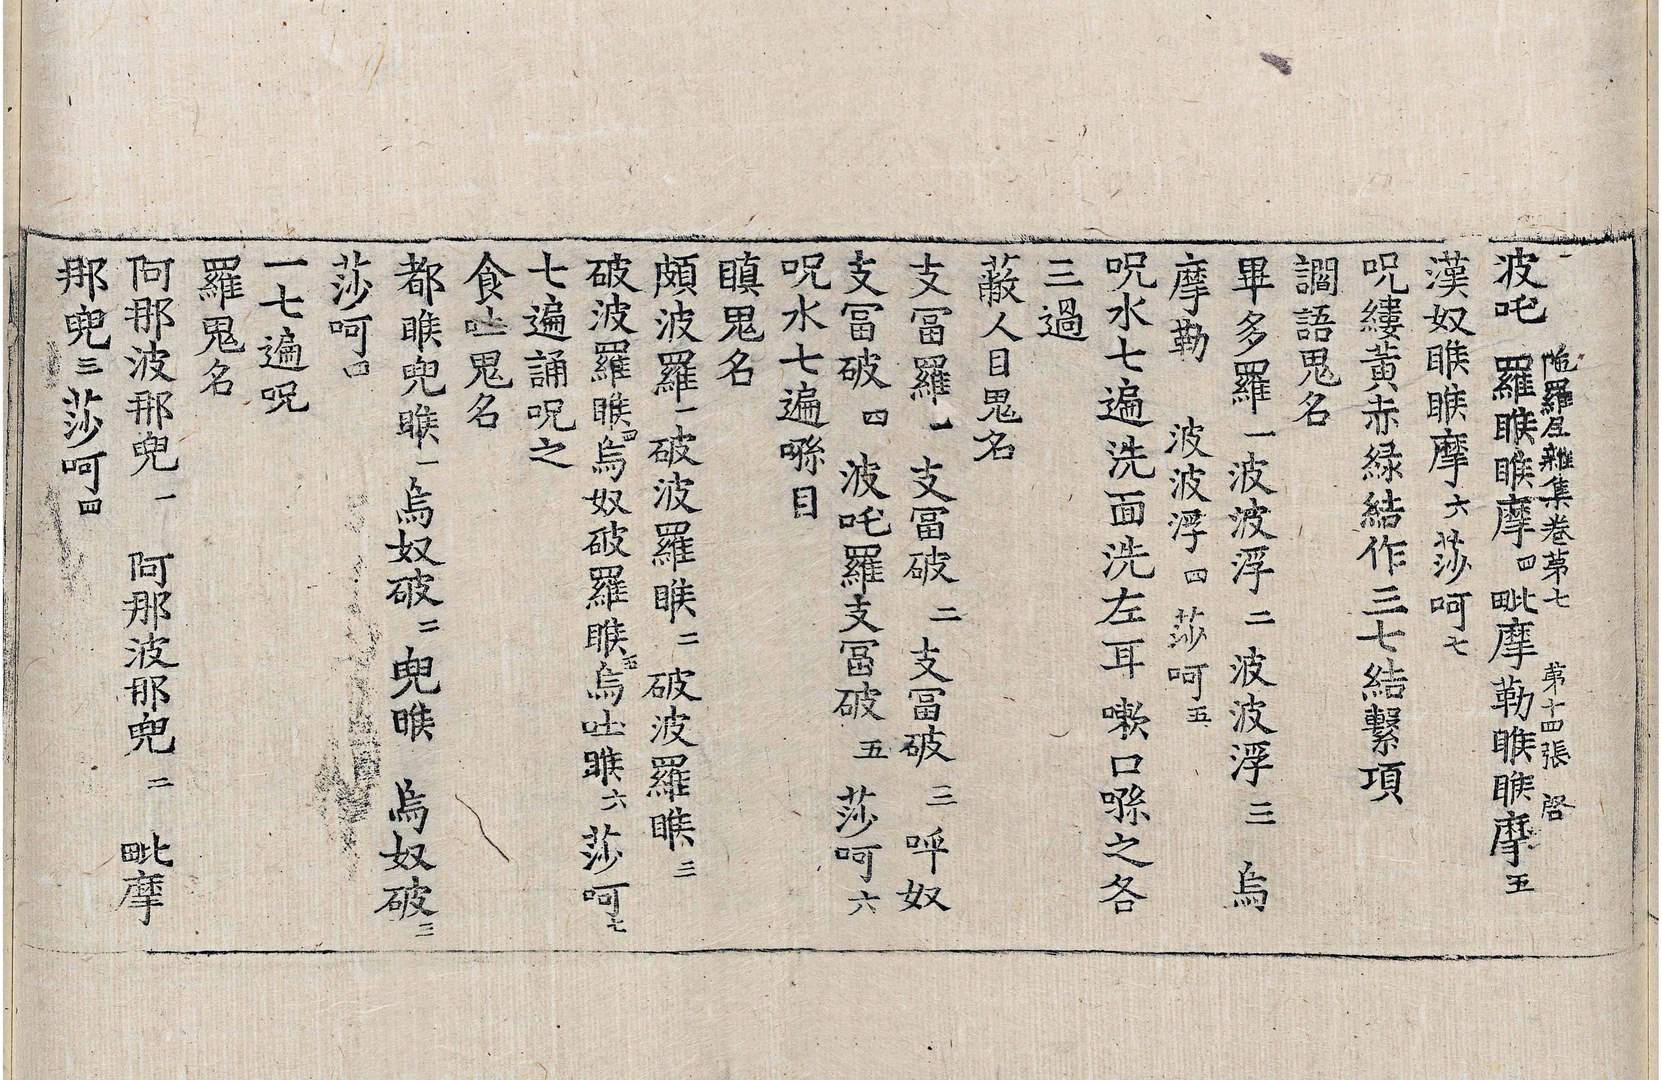 波吒羅睺睺摩四毗摩勒睺睺摩五
陁羅尼雜集卷第七 第十四張 啓
漢奴睺睺摩六莎呵七
呪縷黃赤緑結作三七結繫項
讇語鬼名
畢多羅一波波浮二波波浮三烏
摩勒波波浮四莎呵五
呪水七遍洗面洗左耳嗽口噝之各
三過
蔽人目鬼名
支冨羅一支冨破二支冨破三呼奴
支冨破四波吒羅支冨破五莎呵六
呪水七遍噝目
瞋鬼名
頗波羅一破波羅睺二破波羅睺三
破波羅睺四烏奴破羅睺五烏吐睺六莎呵七
七遍誦呪之
食吐鬼名
都睺兜睺一烏奴破二兜睺烏奴破三
莎呵四
一七遍呪
羅鬼名
阿那波那兜一阿那波那兜二毗摩
那兜三莎呵四